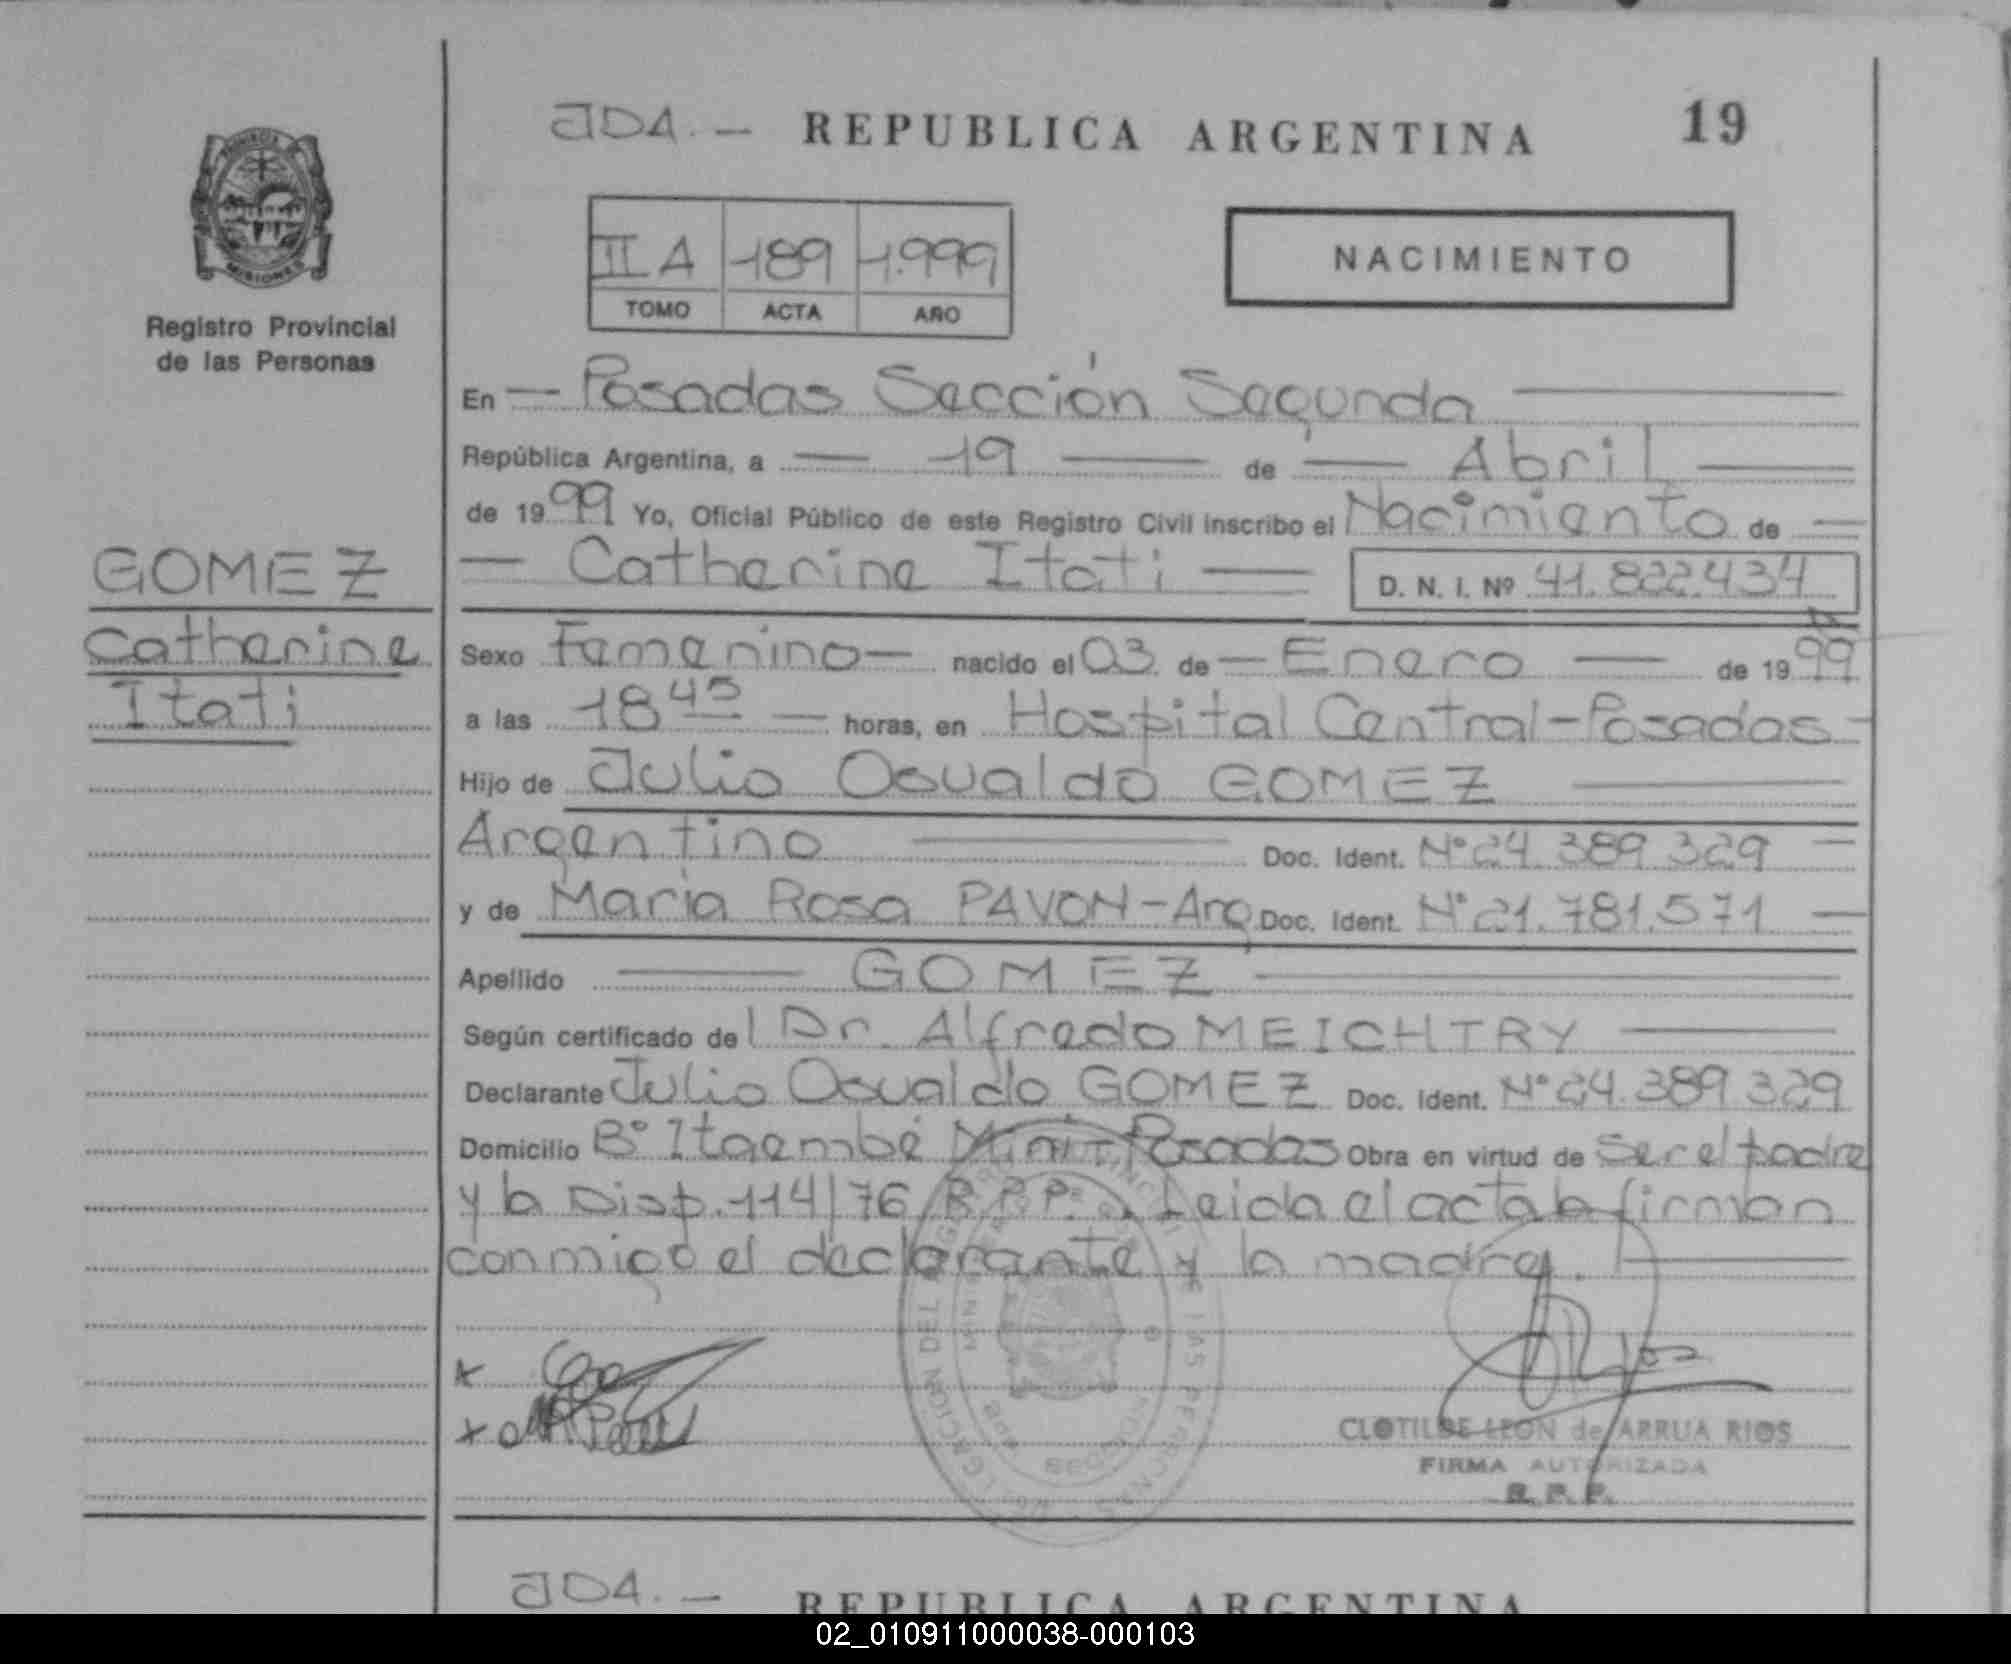 JDA. — REPUBLICA ARGENTINA 19
PROVINCIA DE
MISIONES
Registro Provincial
de las Personas
II A 189 1.999
TOMO ACTA AÑO
NACIMIENTO
En — Posadas Sección Segunda —
República Argentina, a — 19 — de — Abril —
de 1999 Yo, Oficial Público de este Registro Civil inscribo el Nacimiento de —
— Catherine Itati — D. N. I. Nº 41.822.434
GOMEZ
Catherine
Itati
Sexo Femenino — nacido el 03 de — Enero — de 1999
a las 18 45 — horas, en Hospital Central - Posadas -
Hijo de Julio Osvaldo GOMEZ —
Argentino — Doc. Ident. Nº 24.389.329 —
y de Maria Rosa PAVON - Arg Doc. Ident. Nº 21.781.571 —
Apellido — GOMEZ —
Según certificado del Dr. Alfredo MEICHTRY —
Declarante Julio Osvaldo GOMEZ Doc. Ident. Nº 24.389.329
Domicilio Bº Itaembé Mini - Posadas Obra en virtud de ser el padre
y la Disp. 114/76 R.P.P. Leida el acta la firman
conmigo el declarante y la madre. —
x
x
CLOTILDE LEON de ARRUA RIOS
FIRMA AUTORIZADA
R. P. P.
JDA. — REPUBLICA ARGENTINA
02_010911000038-000103